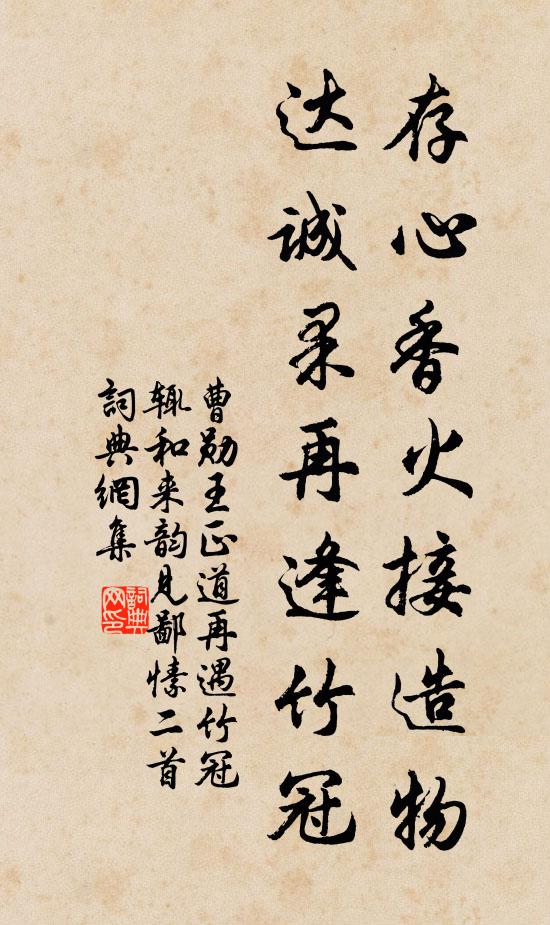 存心香火接造物
达诚果再逢竹冠
曹勋王正道再遇竹冠
辄和来韵见鄙愫二首
词典網集
詞典
网印